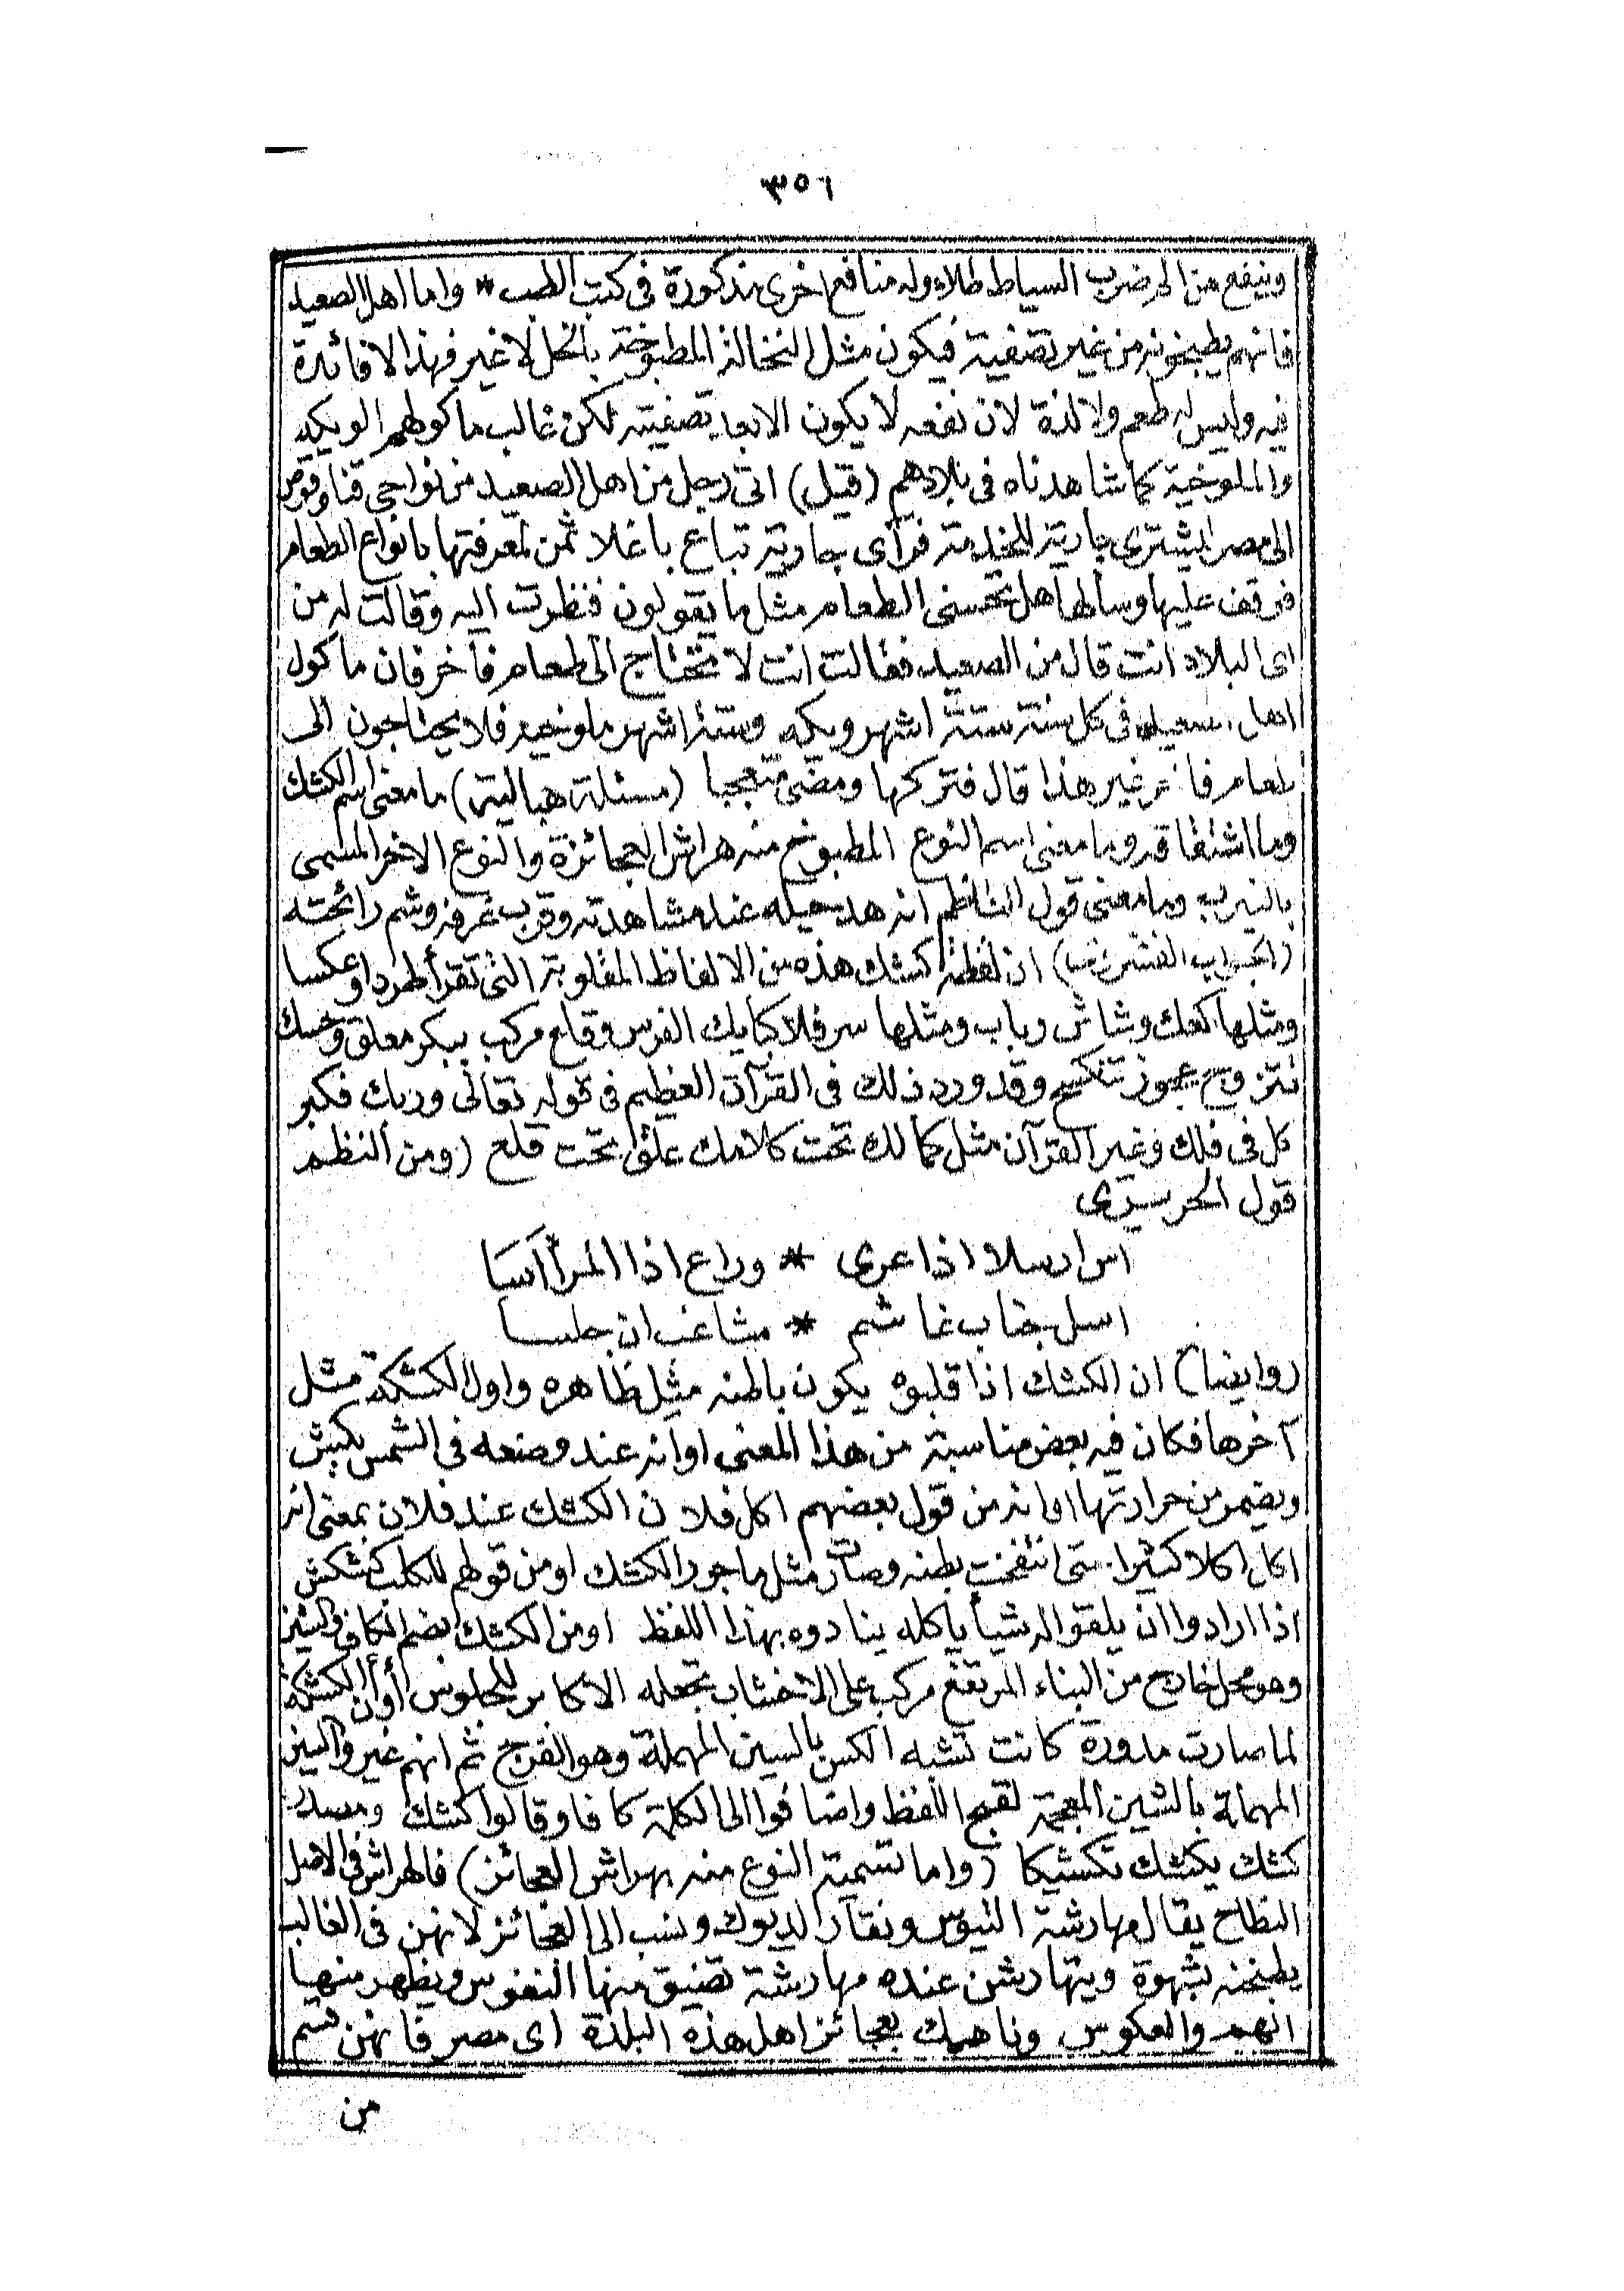 ٣٥٦
وينفع من الم ضرب السياط طلاء وله منافع اخرى مذكورة فى كتب الطب * واما اهل الصعيد
فانهم يطبخونه من غير تصفية فيكون مثل النخالة المطبوخة بالخل لا غير فهذا لا فائدة
فيه وليس له طعم ولا لذة لان نفعه لا يكون الا بعد تصفيته لكن غالب ماكولهم الويكه
والملوخية كما شاهدناه فى بلادهم (قيل) اتى رجل من اهل الصعيد من نواحى قنا وقوص
الى مصر ليشترى جارية للخدمة فرآى جارية تباع باغلا ثمن لمعرفتها بانواع الطعام
فوقف عليها وسألها هل تحسنى الطعام مثل ما يقولون فنظرت اليه وقالت له من
اى البلاد انت قال من الصعيد فقالت انت لا تحتاج الى طعام فاخر فان ماكول
اهل الصعيد فى كل سنة ستة اشهر ويكه وستة اشهر ملوخيه فلا يحتاجون الى
طعام فاخر غير هذا قال فتركها ومضى متعجبا (مسئلة هبالية) ما معنى اسم الكشك
وما اشتقاقه وما معنى اسم النوع المطبوخ منه هراش العجائزة والنوع الاخر المسمى
بالنيرب وما معنى قول الناظم انه هد حيله عند مشاهدته وقرب غرفه وشم رائحته
(الجواب الفشروى) ان لفظة كشك هذه من الالفاظ المقلوبة التى تقرأ طردا وعكسا
ومثلها كعك وشاش وباب ومثلها سر فلا كبابك الفرس وقلع مركب ببكر معلق وخسك
تتزوج عجوز تنكسح وقد ورد ذلك فى القرآن العظيم فى قوله تعالى وربك فكبر
كل فى فلك وغير القرآن مثل كمالك تحت كلامك علق تحت قلع (ومن النظم
قول الحريرى
اس ارملا اذا عرى * وراع اذا المرأ اَسَا
اسل جناب غاشم * مشاغب ان جلسا
(وايضا) ان الكشك اذا قلبوه يكون باطنه مثل ظاهره واول الكشكة مثل
آخرها فكان فيه بعض مناسبة من هذا المعنى او انه عند وضعه فى الشمس يكبش
ويضمر من حرارتها او انه من قول بعضهم اكل فلان الكشك عند فلان بمعنى انه
اكل اكلا كثيرا حتى انتفخت بطنه وصار مثل ماجور الكشك او من قولهم للكلب كشكش
اذا ارادوا ان يلقوا له شيأ ياكله ينادوه بهذا اللفظ او من الكشك بضم الكاف والشين
وهو محل خارج من البناء المرتفع مركب على الاخشاب تجعله الاكابر للجلوس أو أن الكشكة
لما صارت مدورة كانت تشبه الكس بالسين المهملة وهو الفرج ثم انهم غيروا السين
المهملة بالشين المعجمة لقبح اللفظ واضافوا الى الكلمة كافا وقالوا كشك ومصدره
كشك يكشك تكشيكا (واما تسمية النوع منه بهراش العجائز) فالهراش فى الاصل
النطاح يقال مهارشة التيوس ونقار الديوك ونسب الى العجائز لانهن فى الغالب
يطبخنه بشهوة ويتهارشن عنده مهارشة تضيق منها النفوس ويظهر منهبا
الهم والعكوس وناهيك بعجائز اهل هذه البلدة اى مصر فانهن قسم
من